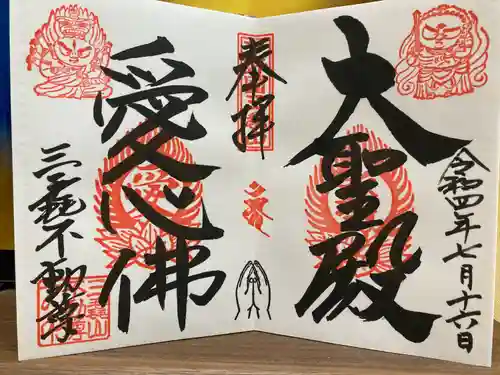 令和四年七月十六日
大聖殿
奉拝
愛心佛
三毳不動尊